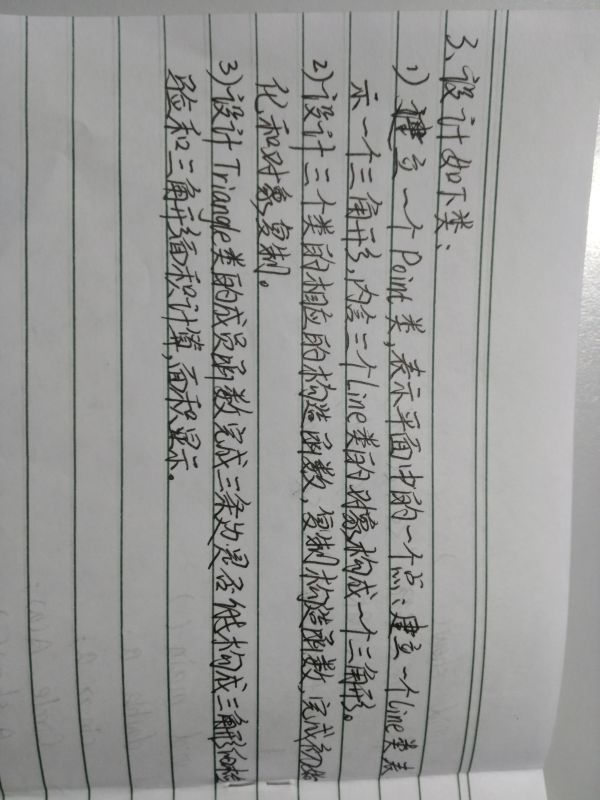 3、设计如下类:
1) 建立一个Point类,表示平面中的一个点;建立一个Line类表
示一个三角形,内含三个Line类的对象构成一个三角形。
2)设计三个类的相应的构造函数,复制构造函数,完成初始
化和对象复制。
3)设计Triangle类的成员函数完成三条边是否能构成三角形的检
验和三角形面积计算,面积显示。